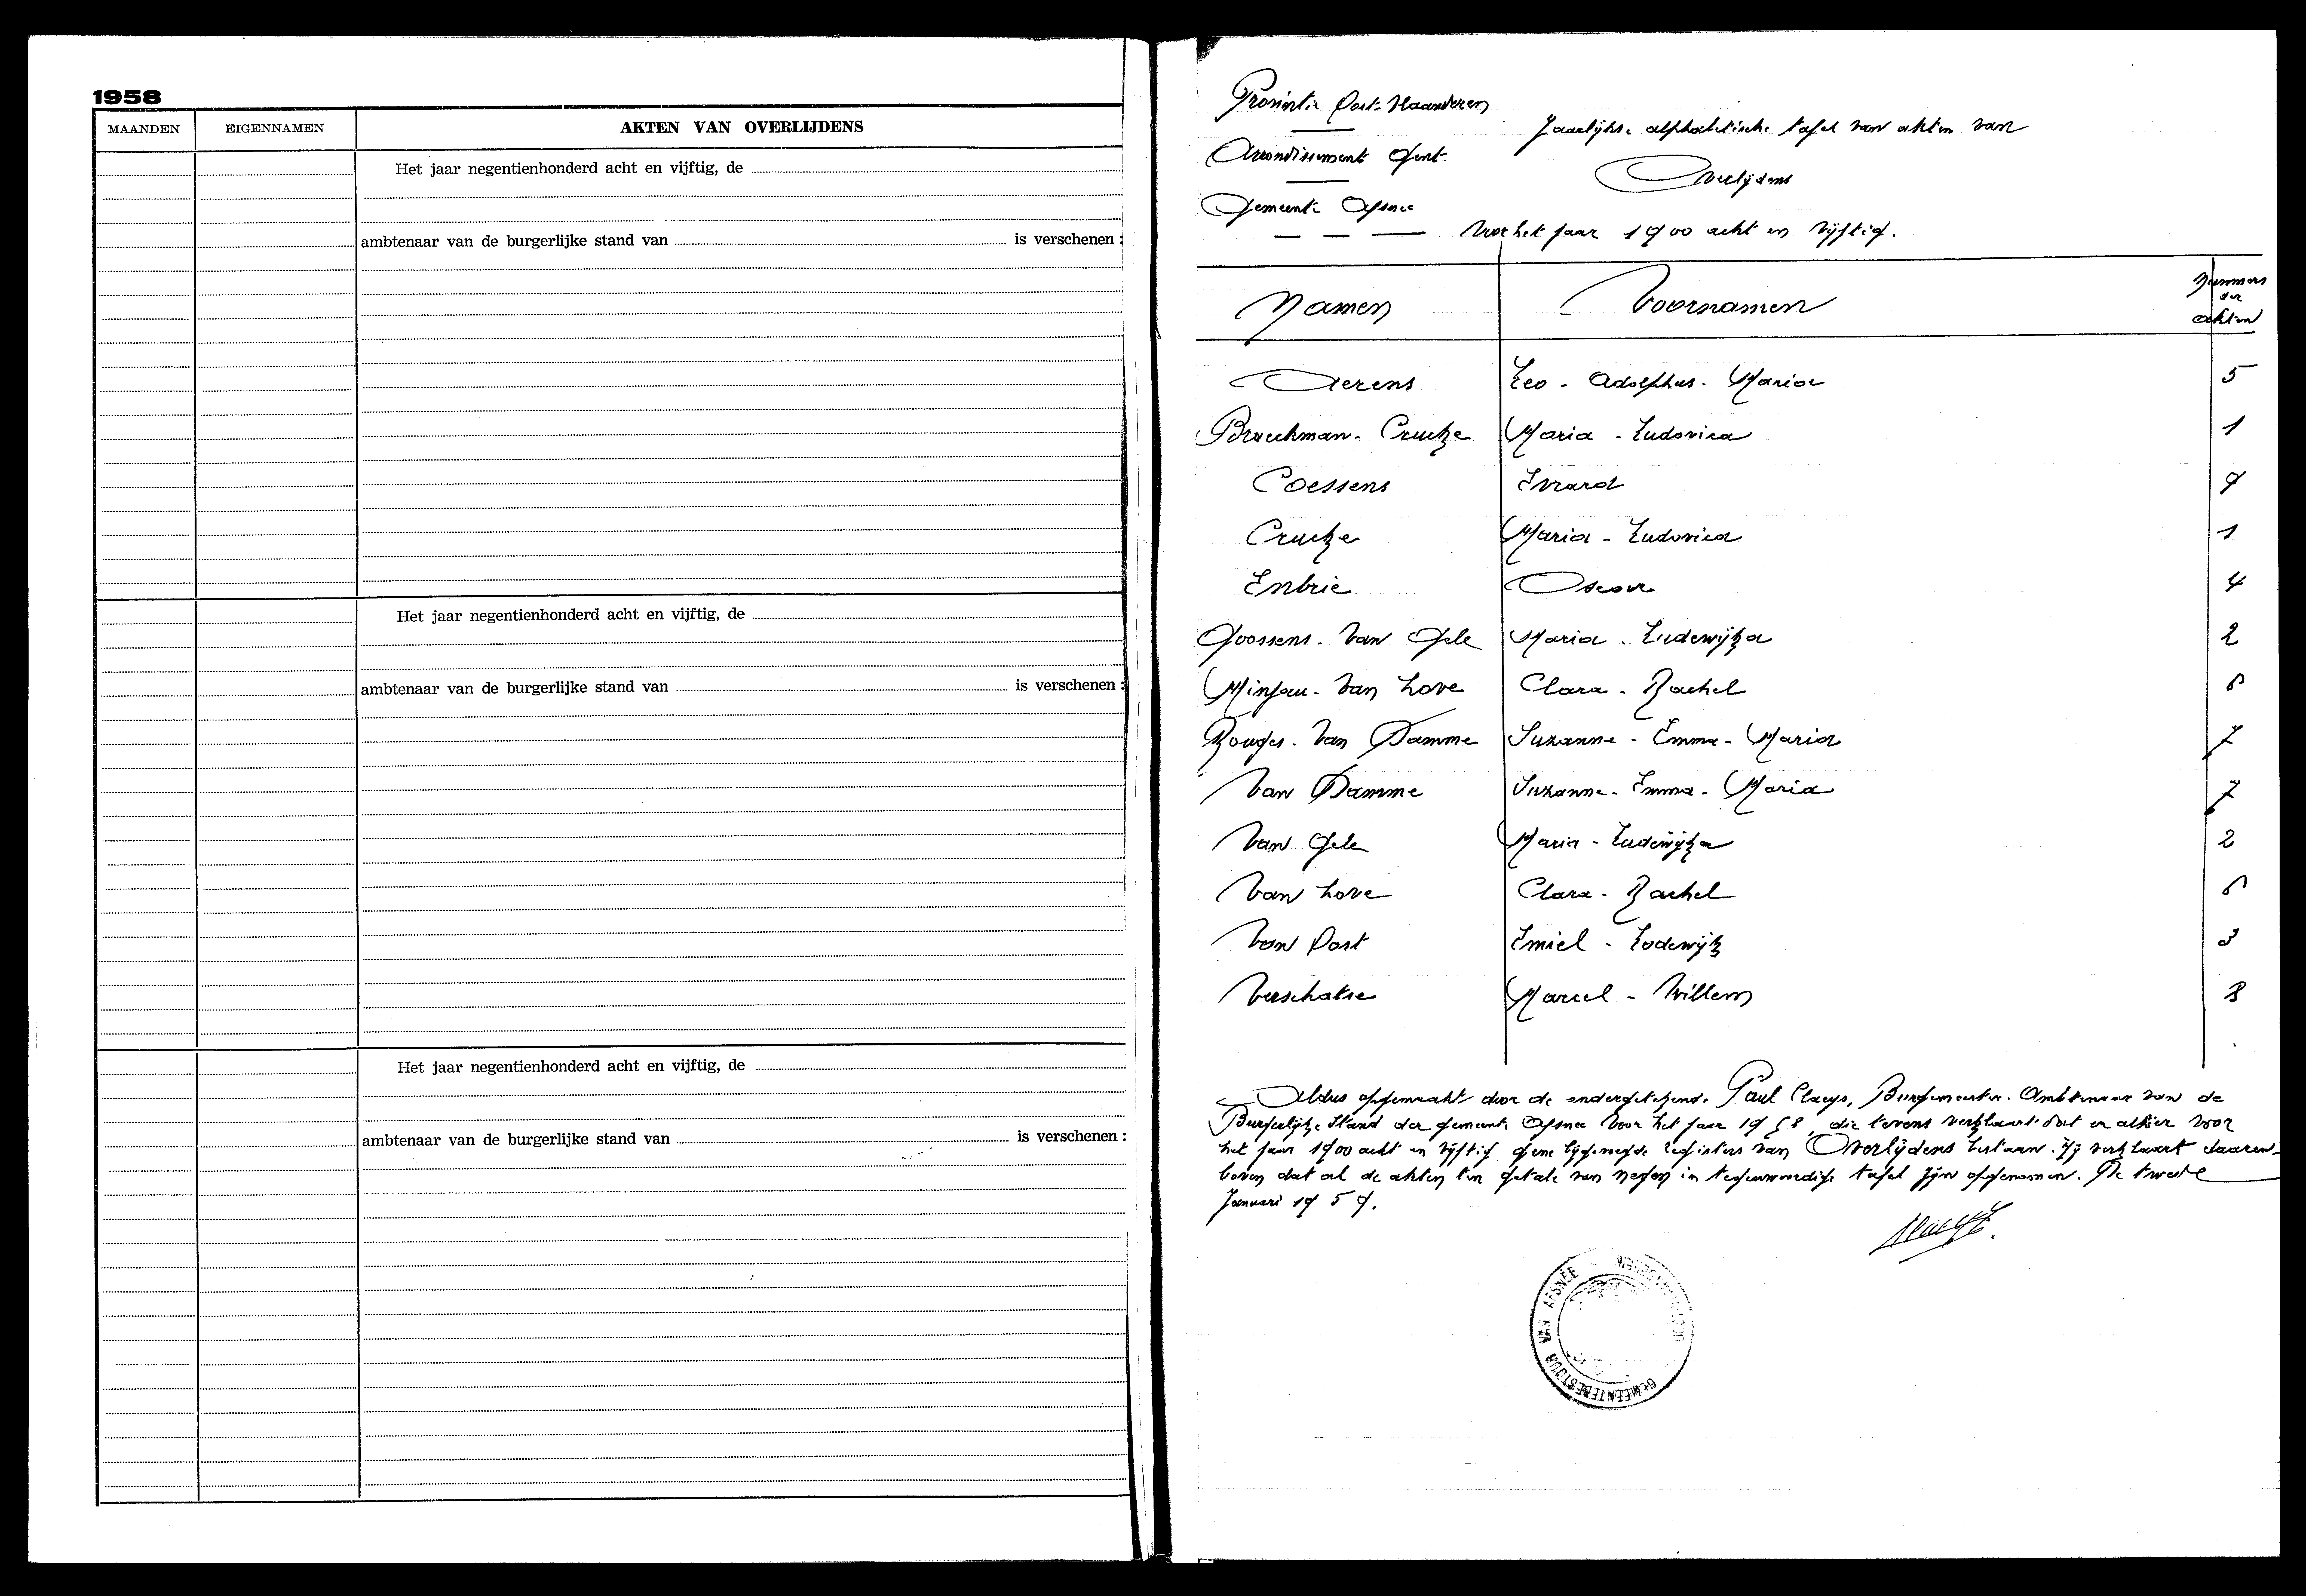 1958
MAANDEN EIGENNAMEN AKTEN VAN OVERLIJDENS
Het jaar negentienhonderd acht en vijftig, de
ambtenaar van de burgerlijke stand van is verschenen :
Het jaar negentienhonderd acht en vijftig, de
ambtenaar van de burgerlijke stand van is verschenen :
Het jaar negentienhonderd acht en vijftig, de
ambtenaar van de burgerlijke stand van is verschenen :
Provintie Oost-Vlaanderen
Jaarlijkse alphabetische tafel van akten van
Arrondissement Gent
Overlijdens
Gemeente Afsnee
Voor het jaar 1900 acht en vijftig.
Namen Voornamen Nummers
der
akten
Aerens Leo - Adolphus - Maria 5
Braeckman - Crucke Maria - Ludovica 1
Coessens Evrard 9
Crucke Maria - Ludovica 1
Enbrie Oscar 4
Goossens - Van Gele Maria - Ludewijka 2
Minjau - Van Hove Clara - Rachel 6
Van Damme Suzanne - Emma - Maria 7
Van Damme Suzanne - Emma - Maria 7
Van Gele Maria - Ludewijka 2
Van Hove Clara - Rachel 6
Van Oost Emiel - Lodewijk 3
Verschatse Marcel - Willem 8
Aldus opgemaakt door de ondergetekende Paul Claeys, Burgemeester. Ambtenaar van de
Burgerlijke Stand der gemeente Afsnee voor het jaar 1958, die tevens verklaart dat er alhier voor
het jaar 1900 acht en vijftig gene bijgevoegde registers van Overlijdens bestaan. Hij verklaart daaren-
boven dat al de akten ten getale van negen in tegenwoordige tafel zijn opgenomen. De twede
Januari 1959.
GEMEENTEBESTUUR VAN AFSNEE